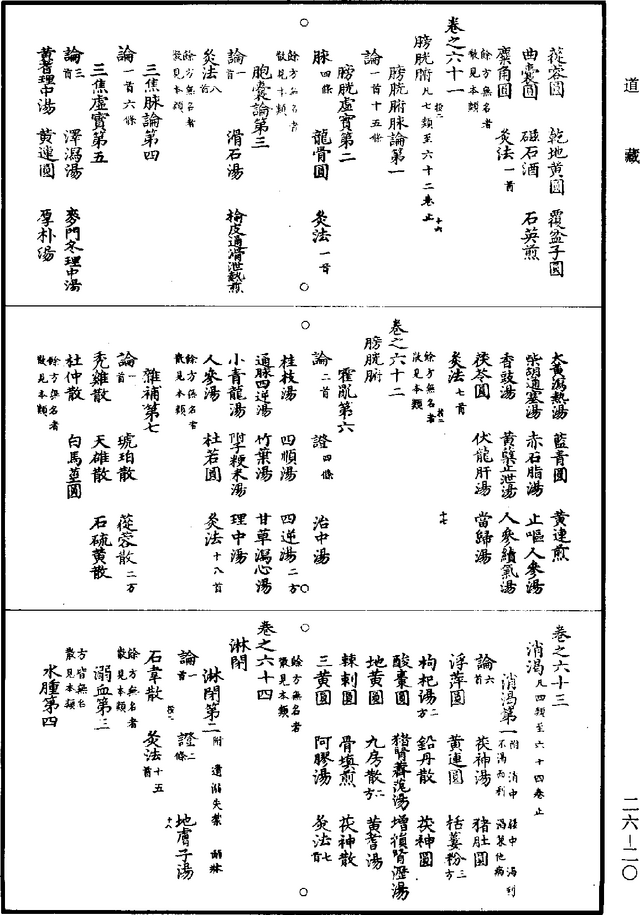 道藏
蓯蓉圓　乾地黃圓　覆盆子圓
曲囊圓　磁石酒　石英煎
麋角圓　灸法一首
餘方無名者散見本類
卷之六十一
膀胱腑凡七類至六十二卷止
膀胱腑脉論第一
論一首十五條
膀胱虛實第二
脉四條　龍骨圓　灸法一首
餘方無名者散見本類
胞囊論第三
論一首　滑石湯　榆皮通滑泄熱煎
灸法八首
餘方無名者散見本類
三焦脉論第四
論一首六條
三焦虛實第五
論三首　澤瀉湯　麥門冬理中湯
黃耆理中湯　黃連圓　厚朴湯
大黃瀉熱湯　藍青圓　黃連煎
柴胡通塞湯　赤石脂湯　止嘔人參湯
香豉湯　黃蘗止泄湯　人參續氣湯
茯苓圓　伏龍肝湯　當歸湯
灸法七首
餘方無名者散見本類
卷之六十二
膀胱腑
霍亂第六
論二首　證四條　治中湯
桂枝湯　四順湯　四逆湯二方
通脉四逆湯　竹葉湯　甘草瀉心湯
小青龍湯　附子粳米湯　理中湯
人參湯　杜若圓　灸法十八首
餘方無名者散見本類
雜補第七
論一首　琥珀散　蓯蓉散二方
禿雞散　天雄散　石硫黃散
杜仲散　白馬莖圓
餘方無名者散見本類
卷之六十三
消渴凡四類至六十四卷止
消渴第一附　消中　強中　渴利　不渴而利　渴裝他病
論六首　茯神湯　豬肚圓
浮萍圓　黃連圓　栝蔞粉三方
枸杞湯二方　鉛丹散　茯神圓
酸棗圓　豬腎薺苨湯　增損腎瀝湯
地黃圓　九房散二方　黃耆湯
棘刺圓　骨填煎　茯神散
三黃圓　阿膠湯　灸法七首
餘方無名者散見本類
卷之六十四
淋閉
淋閉第二附　遺溺失禁　
論一首　證二條　地膚子湯
石韋散　灸法十五首
餘方無名者散見本類
溺血第三
方皆無名散見本類
水腫第四
二六—二〇